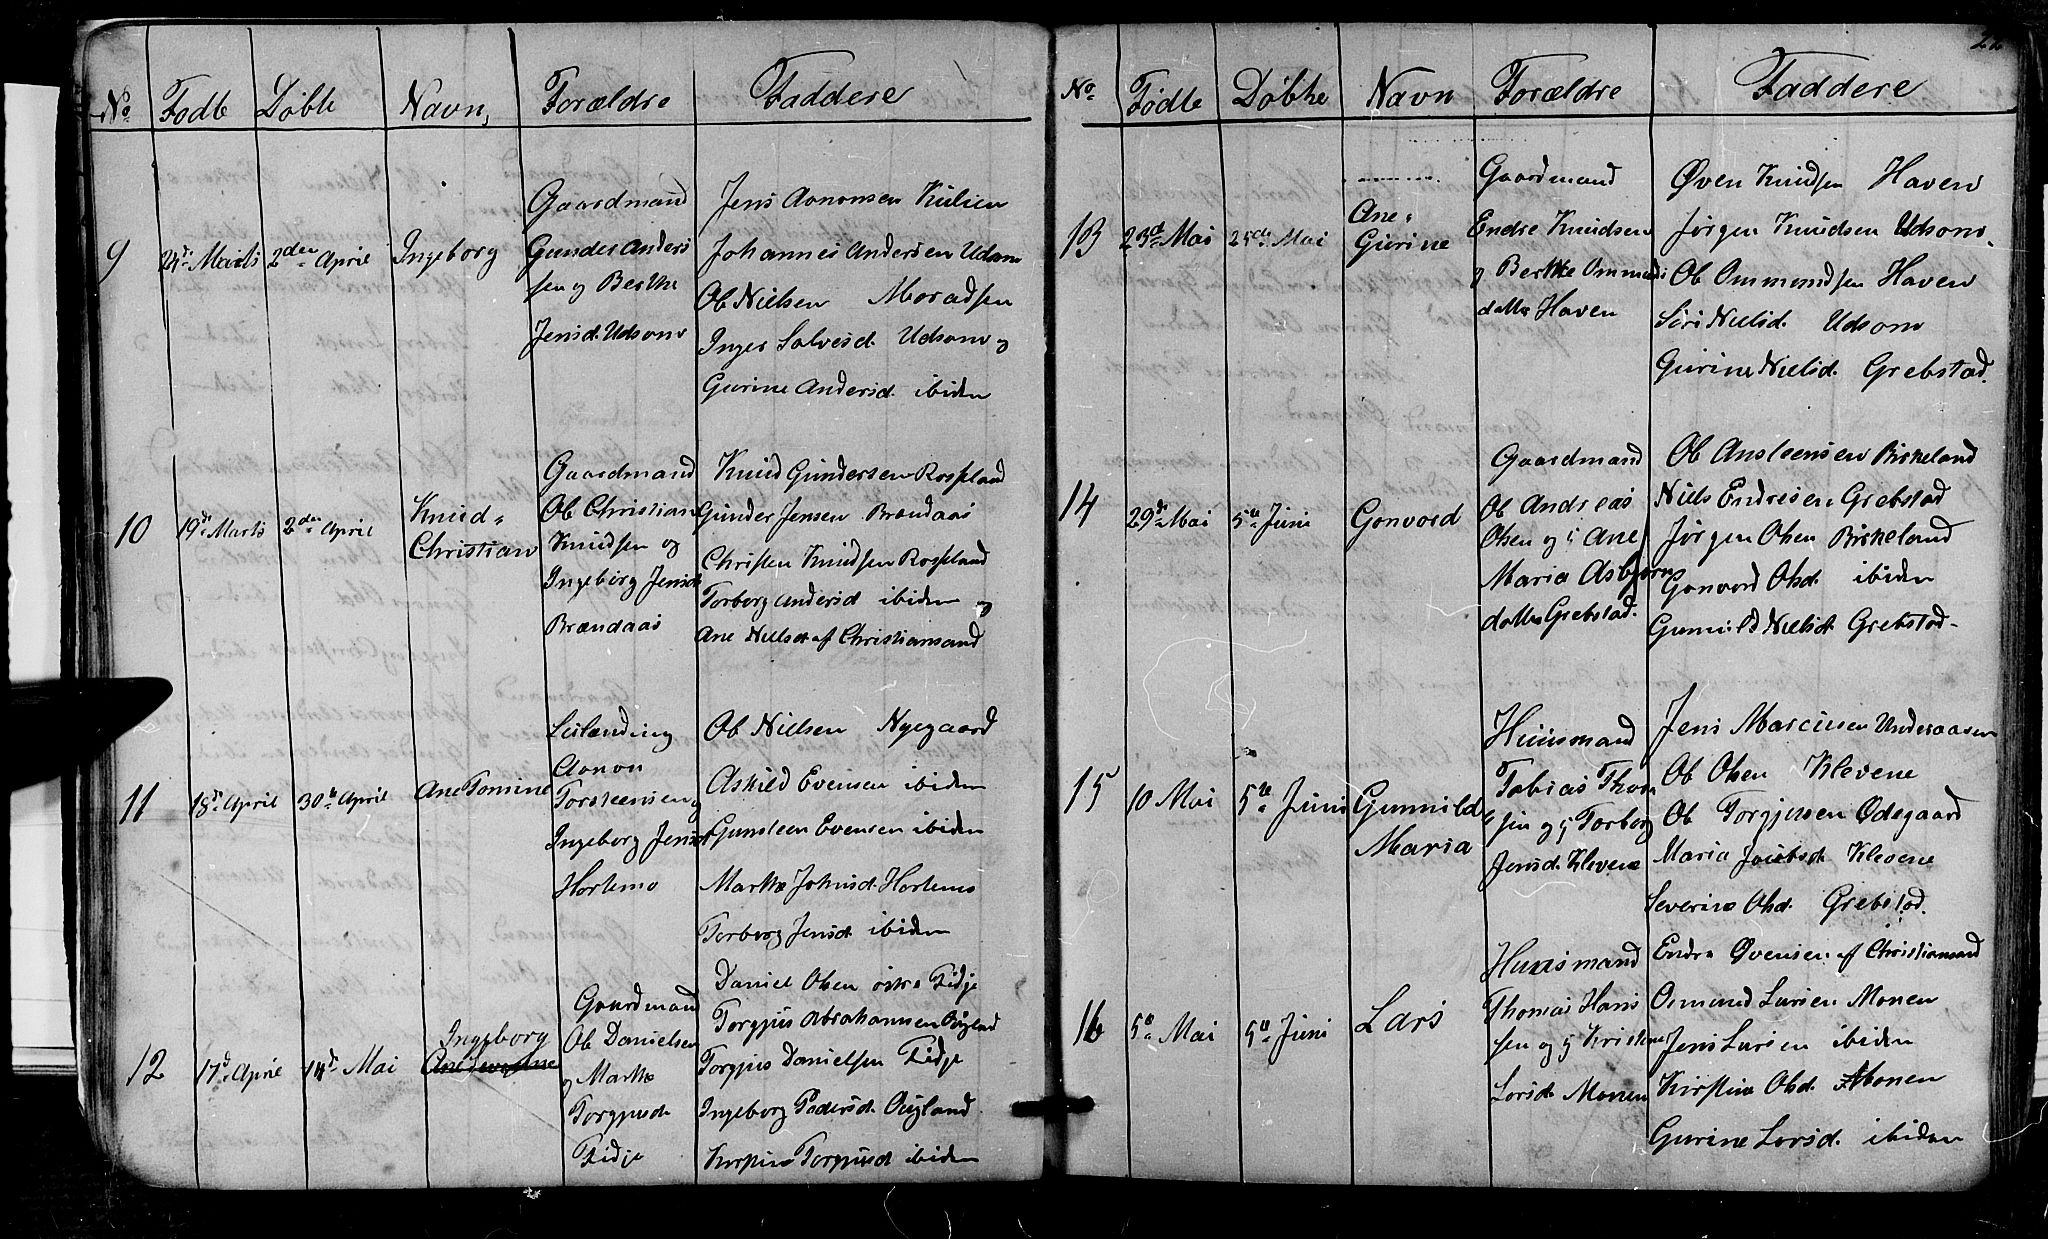 No Fødte Døbte Navn, Forældre Faddere
9
24d. Marts 2den April Ingeborg
Gaardmand
Gunder Anders
sen og Berthe
Jensd. Udsom
Jens Aanonsen Kulien
Johannes Andersen Udsom
Ob Nielsen Moradsen
Inger Salvesd. Udsom og
Gurine Andersd. ibiden
10
19de Marts 2den April
Knud
Christian
Gaardmand
Ob Christian
Knudsen og
Ingeborg Jensd
Brændaas
Knud Gundersen Rosseland
Gunder Jensen Brændaas
Christen Knudsen Rosseland
Torborg Andersd ibiden og
Ane Nielsd af Christiansand
11
18d. April 30te April Ane Tomine
Leilænding
Aanon
Torsteensen og
Ingeborg Jensd
Hortemo
Ob Nielsen Nyegaard
Askild Evensen ibiden
Gunsteen Evensen ibiden
Marthe Johnsd. Hortemo
Torborg Jensd. ibiden
12
17d. April 14d. Mai
Ingeborg
Gaardmand
Ob Danielsen
og Marthe
Torgjusd
Fidje
Daniel Olsen østre Fidje
Torgjus Abrahamsen Øigland
Torgjus Danielsen Fidje
Ingeborg Pedersd. Øigland
Kirstine Torgjusd ibiden
22
No Fødte Døbte Navn Forældre Faddere
13
23d Mai 25de Mai
Ane
Gurine
Gaardmand
Endre Knudsen
og Berthe Ommunds
datter Haven
Øven Knudsen Haven
Jørgen Knudsen Udsom
Ob Ommundsen Haven
Siri Nielsd. Udsom
Gurine Nielsd. Grebstad.
14
29de Mai 5te Juni Gonvord
Gaardmand
Ob Andreas
Olsen og Ane
Maria Asbjørns
datter Grebstad.
Ob Ansteensen Birkeland
Niels Endresen Grebstad
Jørgen Olsen Birkeland
Gonvord Olsd. ibiden
Gunild Nielsd. Grebstad
15
10 Mai 5te Juni
Gunnild
Maria
Huusmand
Tobias Thom
sen og Torborg
Jensd. Klevene
Jens Marcusen Underaasen
Ob Olsen Klevene
Ob Torgjersen Ødegaard
Maria Jacobsd. Klevene
Severine Olsd. Grebstad.
16
5te Mai 5te Juni Lars
Huusmand
Thomas Hans
sen og Kirstine
Larsd. Monen
Endre Øvensen af Christiansand
Osmund Larsen Monen
Jens Larsen ibiden
Kirstine Olsd. Monen
Gurine Larsd. ibiden